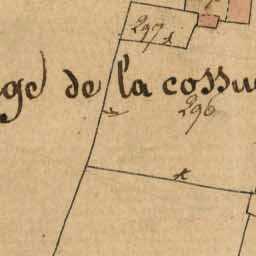 297
de la cossu
296